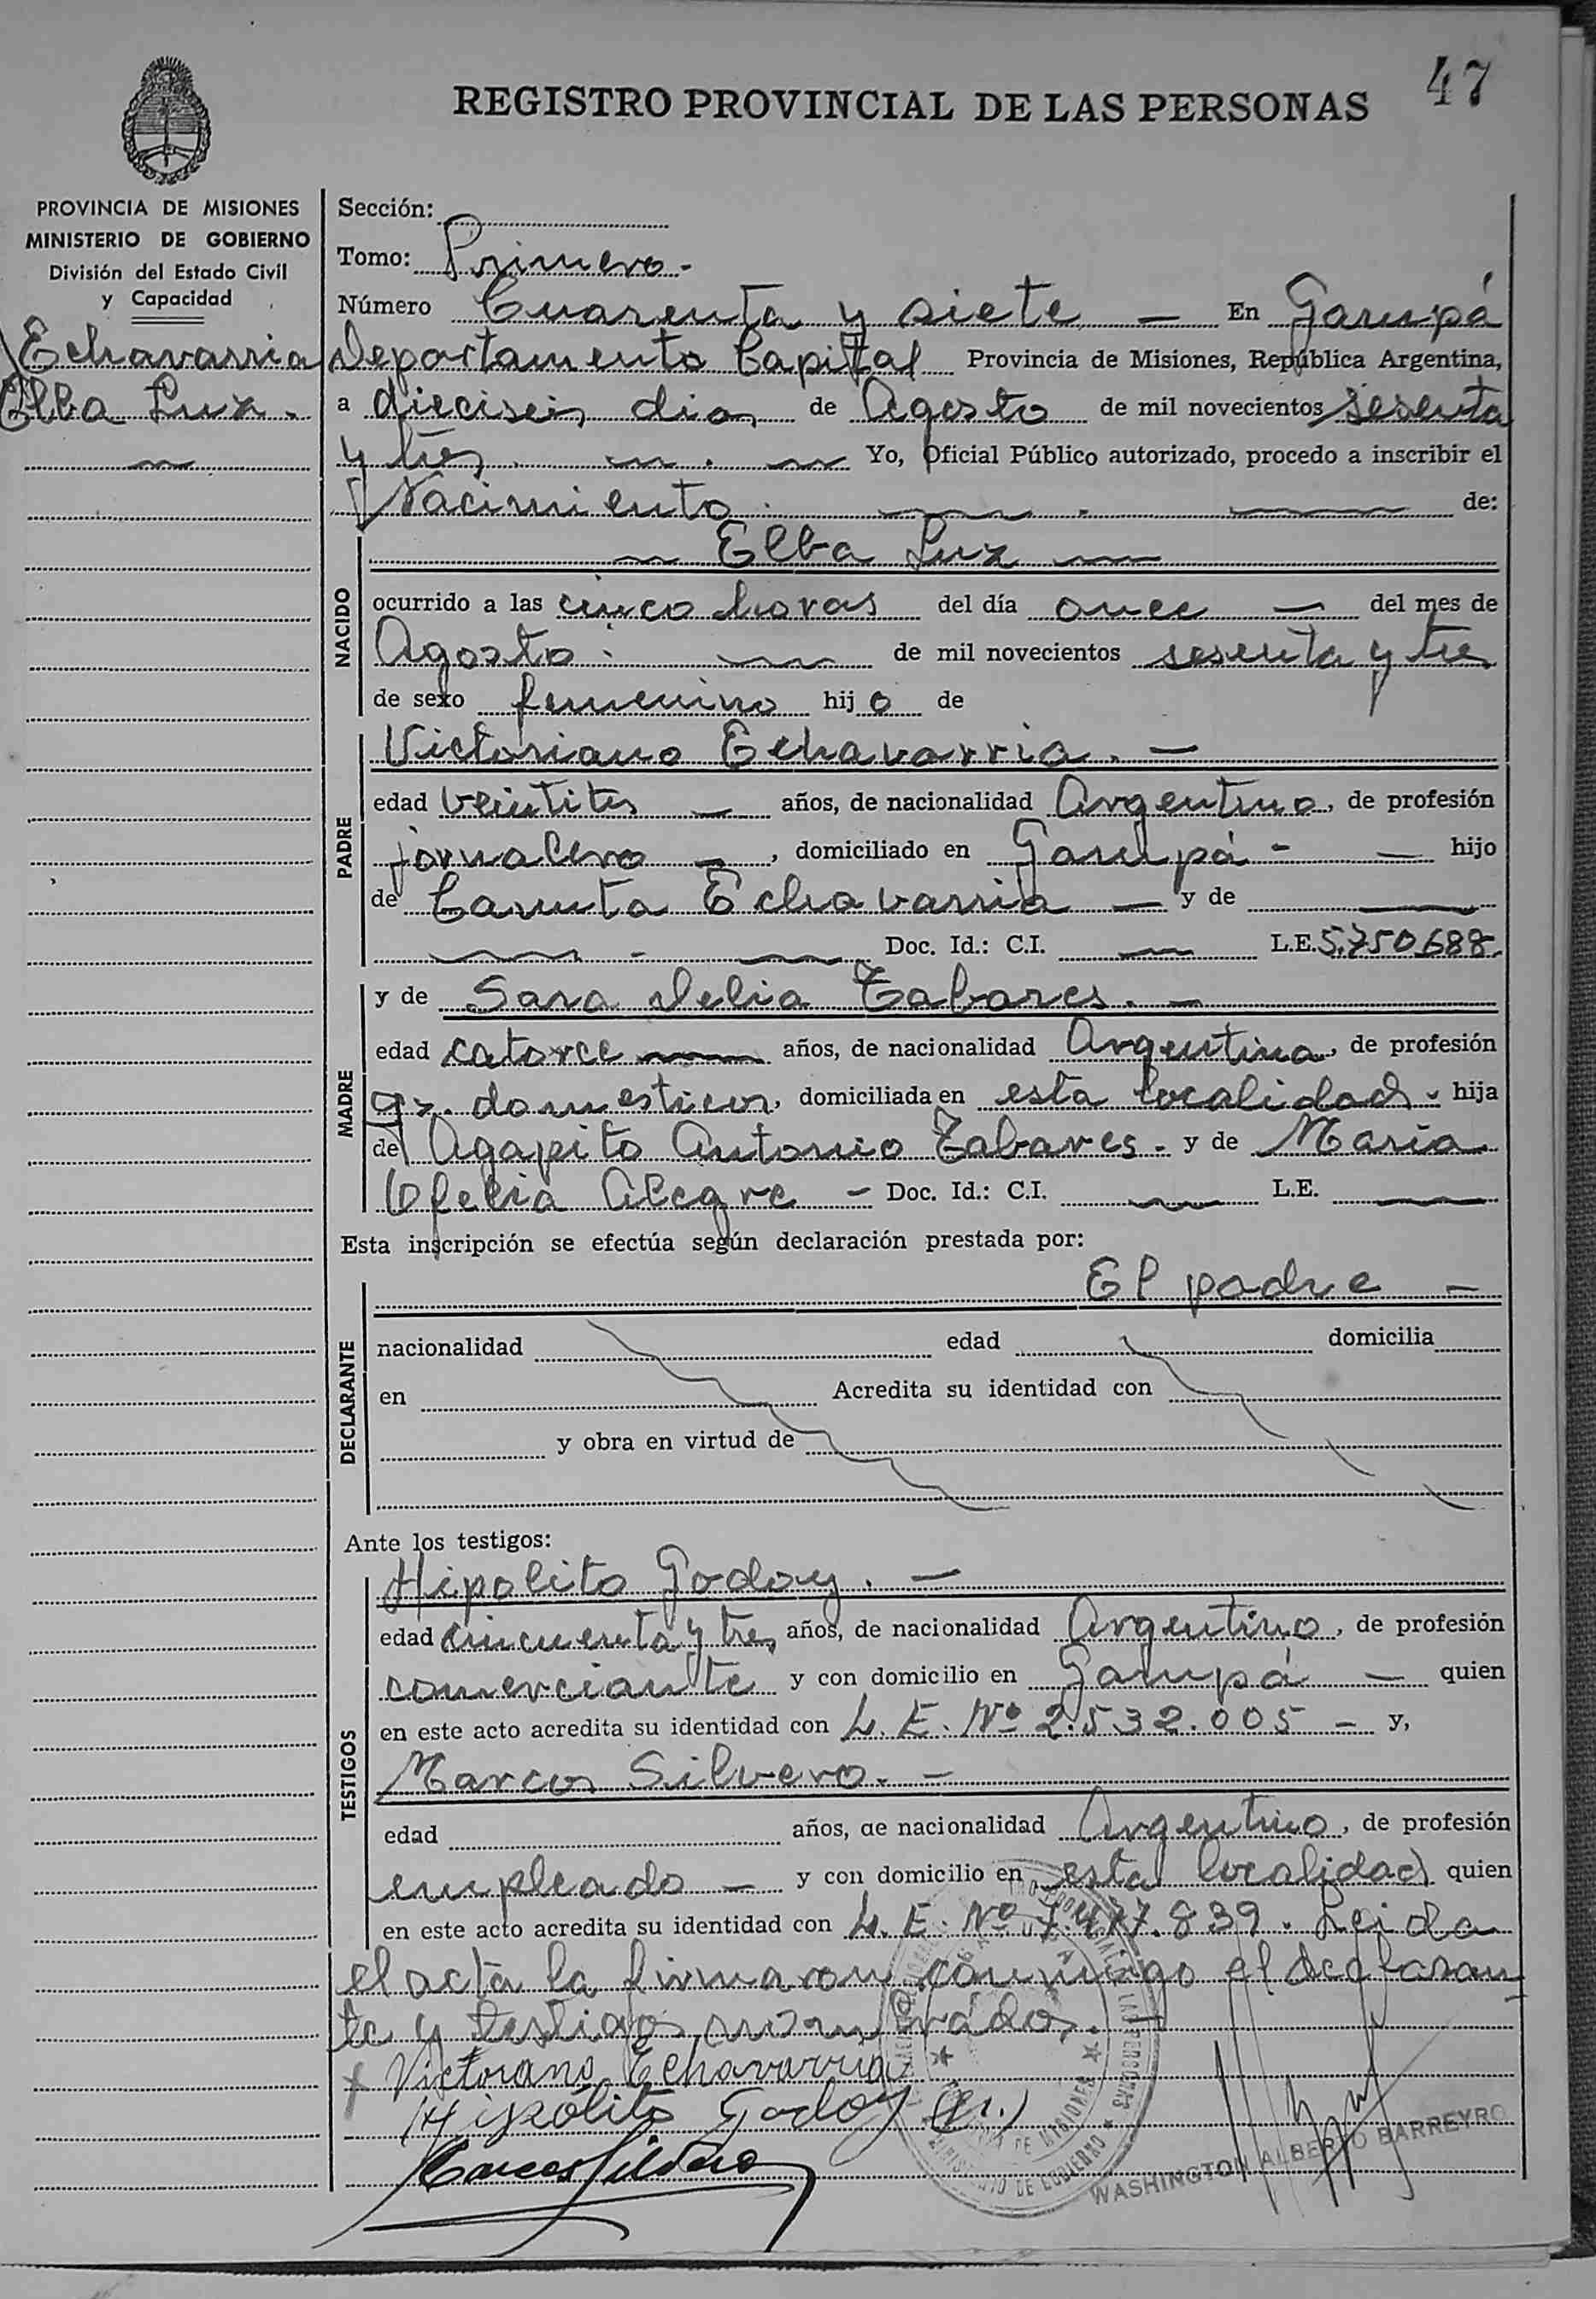 47
REGISTRO PROVINCIAL DE LAS PERSONAS
PROVINCIA DE MISIONES
MINISTERIO DE GOBIERNO
División del Estado Civil
y Capacidad
Echavarria
Elba Luz.
Sección:
Tomo: Primero.-
Número Cuarenta y siete — En Garupá
Departamento Capital Provincia de Misiones, República Argentina,
a dieciseis dias de Agosto de mil novecientos sesenta
y tres. Yo, Oficial Público autorizado, procedo a inscribir el
Nacimiento. de:
NACIDO
Elba Luz
ocurrido a las cinco horas del día once — del mes de
Agosto. de mil novecientos sesenta y tres
de sexo femenino hijo de
PADRE
Victoriano Echavarria. —
edad veintitres — años, de nacionalidad Argentino, de profesión
jornalero —, domiciliado en Garupá - — hijo
de Canuta Echavarria — y de —
Doc. Id.: C.I. — L.E. 5.750.688.
MADRE
y de Sara Delia Tabares. —
edad catorce — años, de nacionalidad Argentina, de profesión
qz. domesticos, domiciliada en esta localidad. hija
de Agapito Antonio Tabares. y de Maria
Ofelia Alegre — Doc. Id.: C.I. — L.E. —
Esta inscripción se efectúa según declaración prestada por:
DECLARANTE
El padre —
nacionalidad edad domicilia
en Acredita su identidad con
y obra en virtud de
Ante los testigos:
TESTIGOS
Hipolito Godoy. —
edad cincuenta y tres años, de nacionalidad Argentino, de profesión
comerciante y con domicilio en Garupá — quien
en este acto acredita su identidad con L. E. Nº 2.532.005 — y,
Marcos Silvero. —
edad años, de nacionalidad Argentino, de profesión
empleado — y con domicilio en esta localidad quien
en este acto acredita su identidad con L. E. Nº 7.477.839. Leida
el acta la firmaron conmigo el declaran-
te y testigos nombrados. —
x Victoriano Echavarria
Hipólito Godoy
Marcos Silvero
WASHINGTON ALBERTO BARREYRO